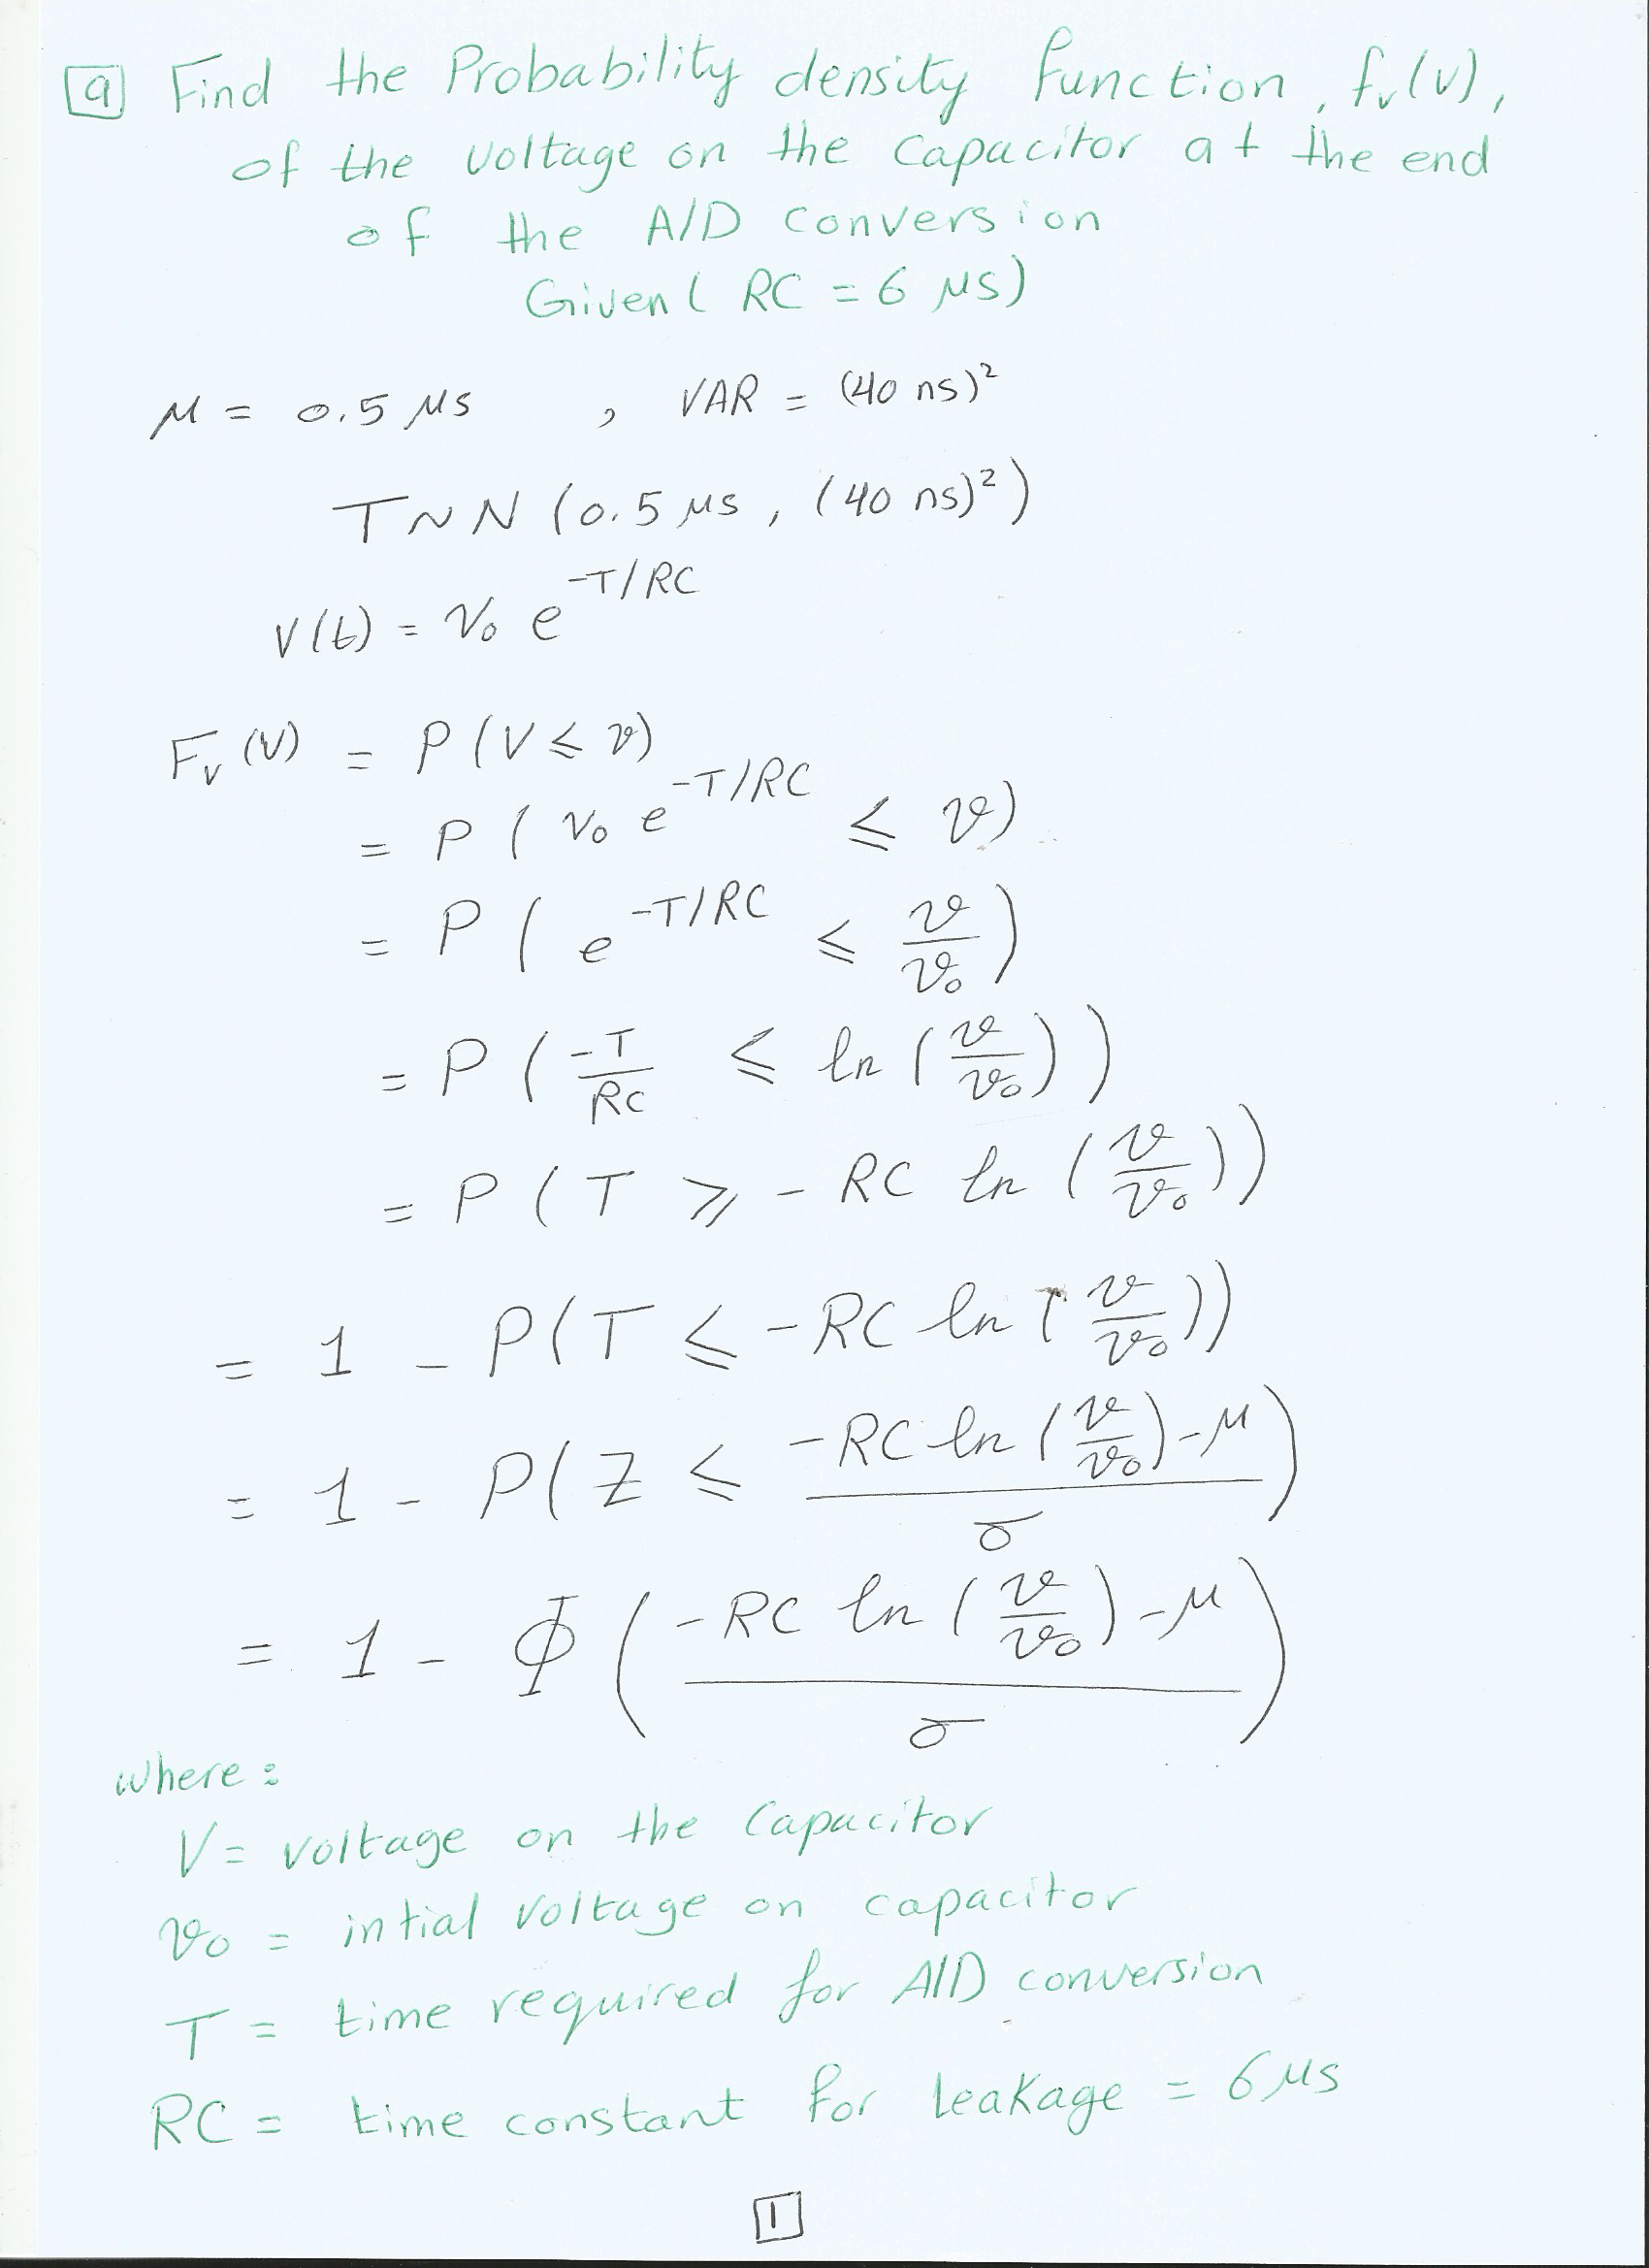 a Find the Probability density function, fᵥ(v),
of the voltage on the capacitor at the end
of the A/D conversion
Given ( RC = 6 μs)
μ = 0.5 μs , VAR = (40 ns)²
T ~ N (0.5 μs, (40 ns)²)
V(t) = v₀ e^(-T/RC)
Fᵥ(V) = P(V ≤ v)
= P( v₀ e^(-T/RC) ≤ v)
= P( e^(-T/RC) ≤ v/v₀ )
= P( -T/RC ≤ ln (v/v₀))
= P( T ≥ - RC ln (v/v₀))
= 1 - P(T ≤ -RC ln (v/v₀))
= 1 - P( Z ≤ (-RC ln (v/v₀) - μ)/σ )
= 1 - Φ( (-RC ln (v/v₀) - μ)/σ )
where:
V = voltage on the Capacitor
v₀ = intial voltage on capacitor
T = time required for A/D conversion
RC = time constant for leakage = 6 μs
1